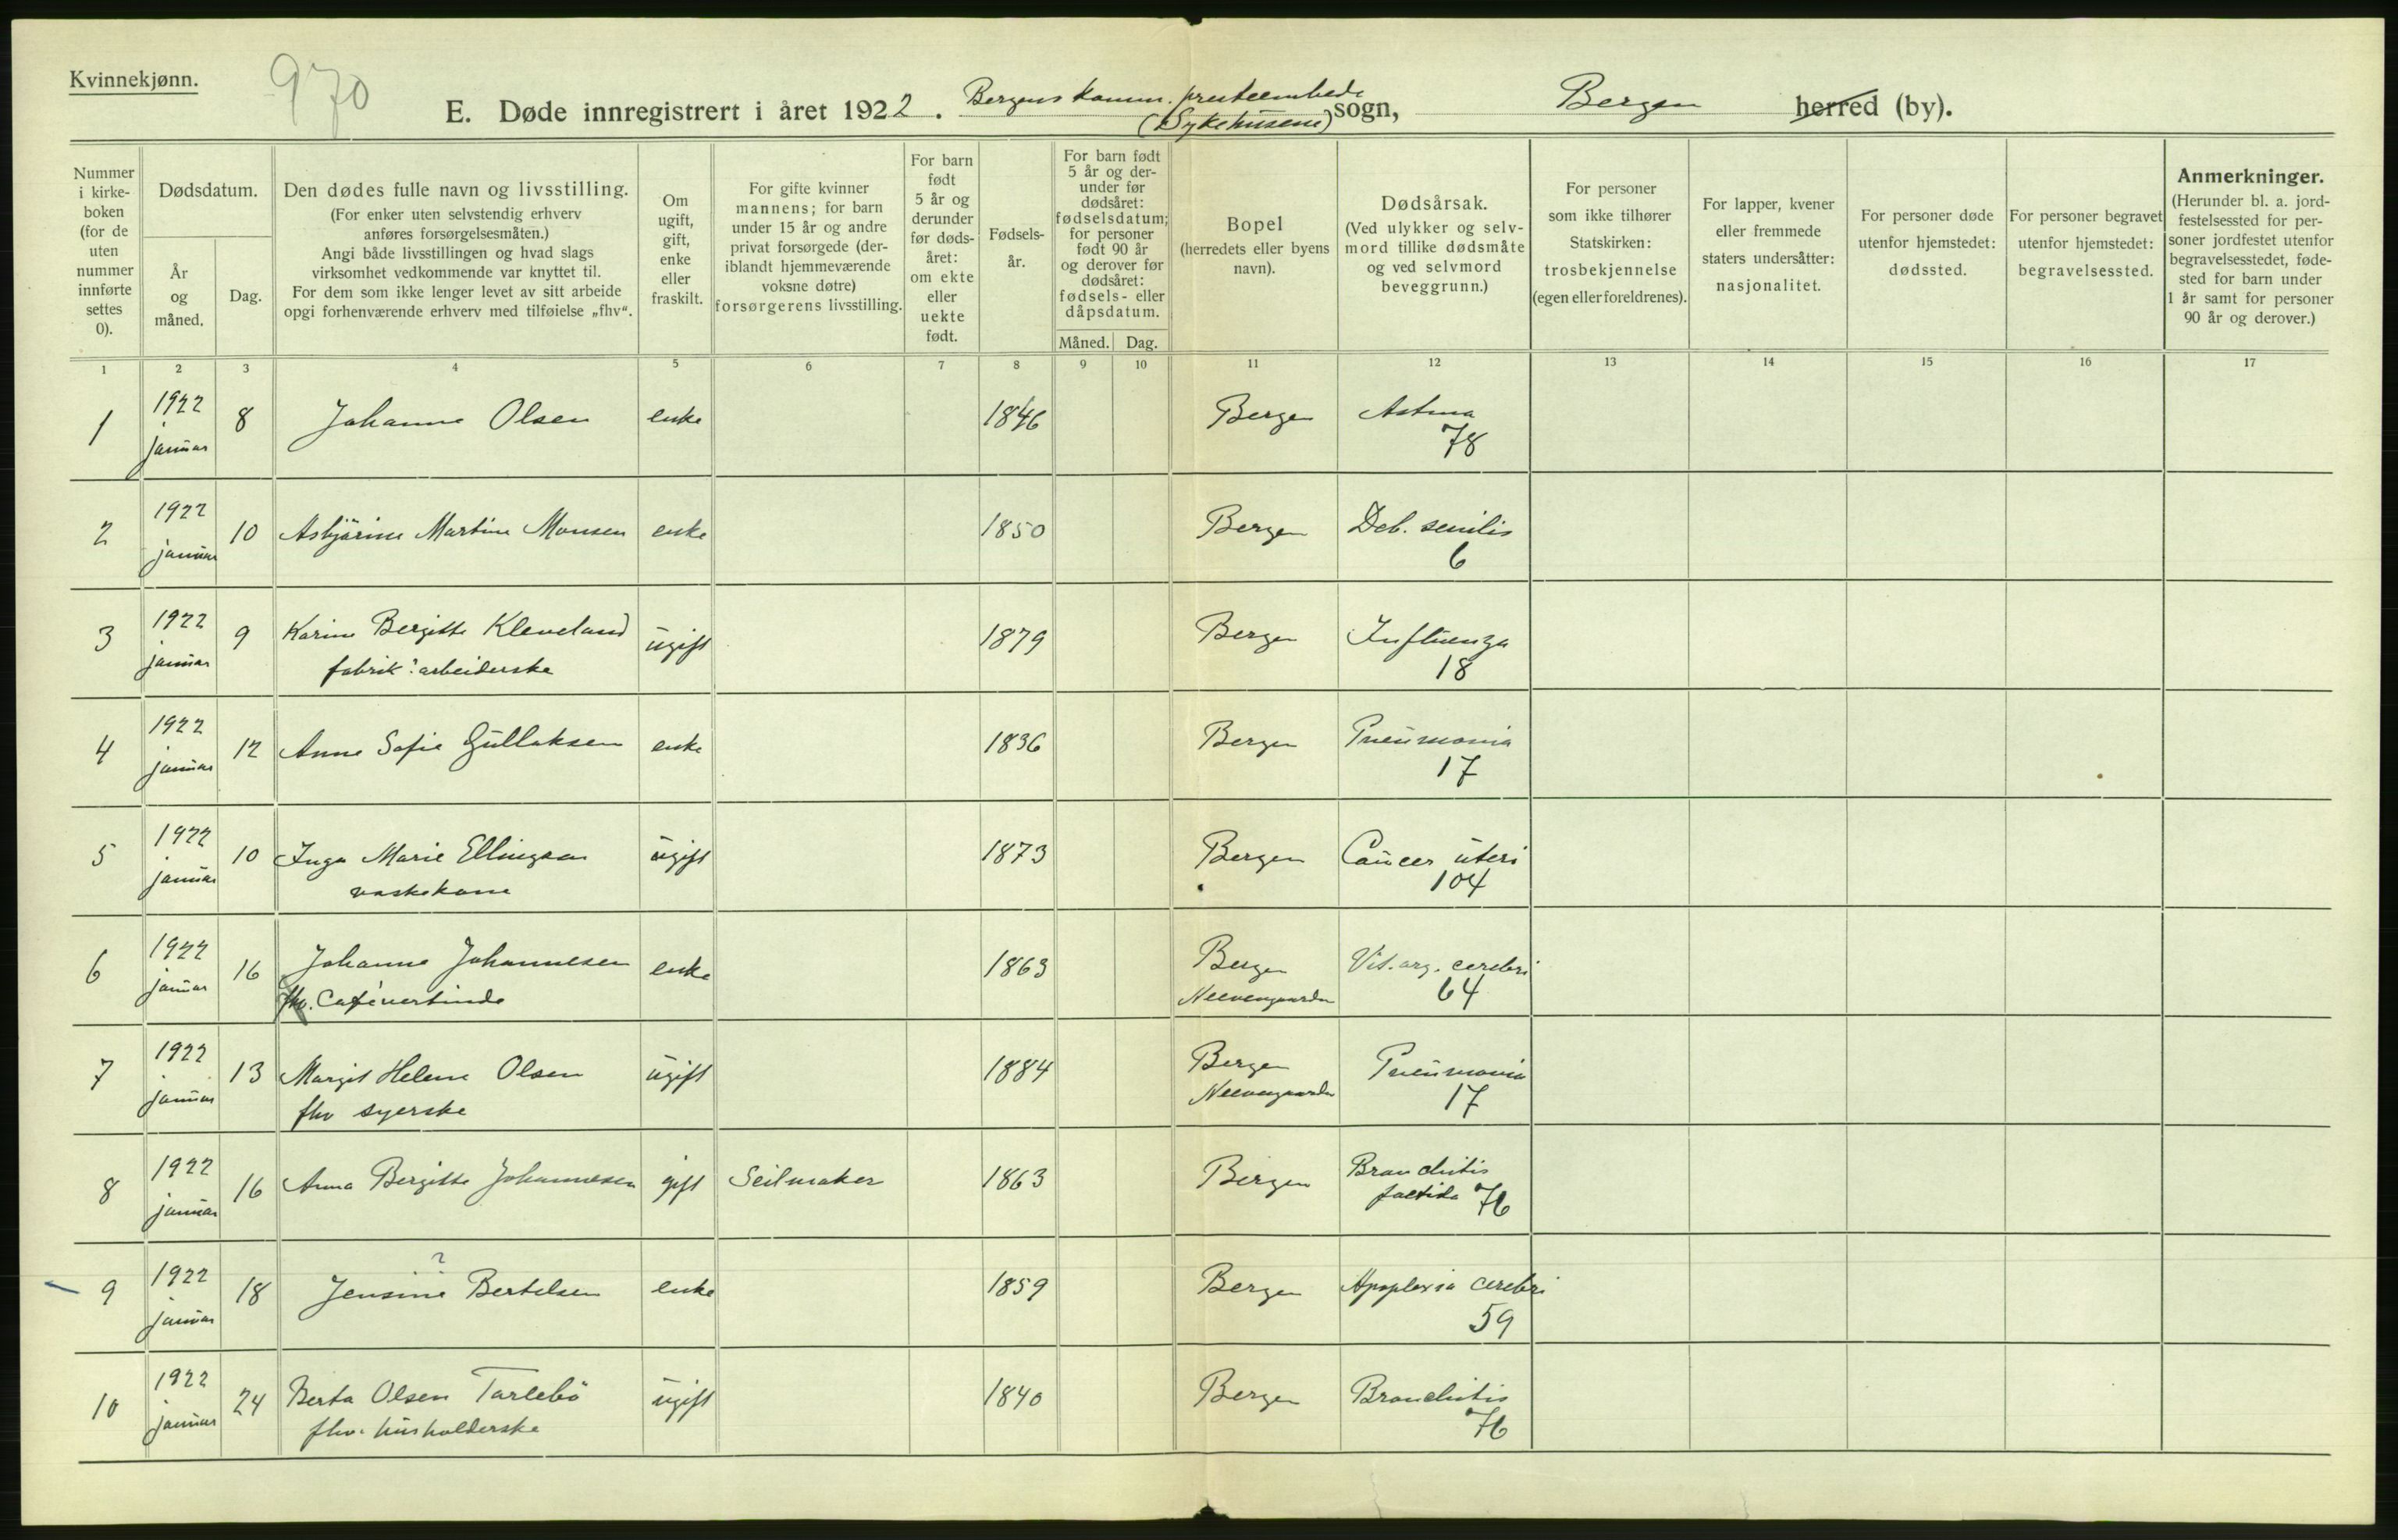 Kvinnekjønn.
970
E. Døde innregistrert i året 1922. Bergens komm. presteembede (Sykehusene) sogn, Bergen herred (by).
Nummer i kirke- boken (for de uten nummer innførte settes 0).
Dødsdatum.
År og måned.
Dag.
Den dødes fulle navn og livsstilling.
(For enker uten selvstendig erhverv
anføres forsørgelsesmåten.)
Angi både livsstillingen og hvad slags
virksomhet vedkommende var knyttet til.
For dem som ikke lenger levet av sitt arbeide
opgi forhenværende erhverv med tilføielse „fhv“.
Om ugift, gift, enke eller fraskilt.
For gifte kvinner
mannens; for barn
under 15 år og andre
privat forsørgede (der-
iblandt hjemmeværende
voksne døtre)
forsørgerens livsstilling.
For barn født 5 år og derunder før døds- året: om ekte eller uekte født.
Fødsels- år.
For barn født
5 år og der-
under før
dødsåret:
fødselsdatum;
for personer
født 90 år
og derover før
dødsåret:
fødsels- eller
dåpsdatum.
Måned. Dag.
Bopel
(herredets eller byens
navn).
Dødsårsak.
(Ved ulykker og selv-
mord tillike dødsmåte
og ved selvmord
beveggrunn.)
For personer
som ikke tilhører
Statskirken:
trosbekjennelse
(egen eller foreldrenes).
For lapper, kvener
eller fremmede
staters undersåtter:
nasjonalitet.
For personer døde
utenfor hjemstedet:
dødssted.
For personer begravet
utenfor hjemstedet:
begravelsessted.
Anmerkninger.
(Herunder bl. a. jord-
festelsessted for per-
soner jordfestet utenfor
begravelsesstedet, føde-
sted for barn under
1 år samt for personer
90 år og derover.)
1 2 3 4 5 6 7 8 9 10 11 12 13 14 15 16 17
1 1922 januar 8 Johanne Olsen enke 1846 Bergen Astma
78
2 1922 januar 10 Asbjörine Martine Monsen enke 1850 Bergen Deb. senilis
6
3 1922 januar 9 Karine Bergitte Kleveland ugift 1879 Bergen Influenza
fabrik:arbeiderske 18
4 1922 januar 12 Anne Sofie Gullaksen enke 1836 Bergen Pneumonia
17
5 1922 januar 10 Inga Marie Ellingsen ugift 1873 Bergen Cancer uteri
vaskekone 104
6 1922 januar 16 Johanne Johannesen enke 1863 Bergen Vit. org. cerebri
fhv. Cafévertinde Neevengaarden 64
7 1922 januar 13 Margit Helene Olsen ugift 1884 Bergen Pneumonia
fhv syerske Neevengaarden 17
8 1922 januar 16 Anna Bergitte Johannesen gift Seilmaker 1863 Bergen Bronchitis
foetida 76
?
9 1922 januar 18 Jensine Bertelsen enke 1859 Bergen Apoplexia cerebri
59
10 1922 januar 24 Berta Olsen Tarlebö ugift 1840 Bergen Bronchitis
fhv. husholderske 76